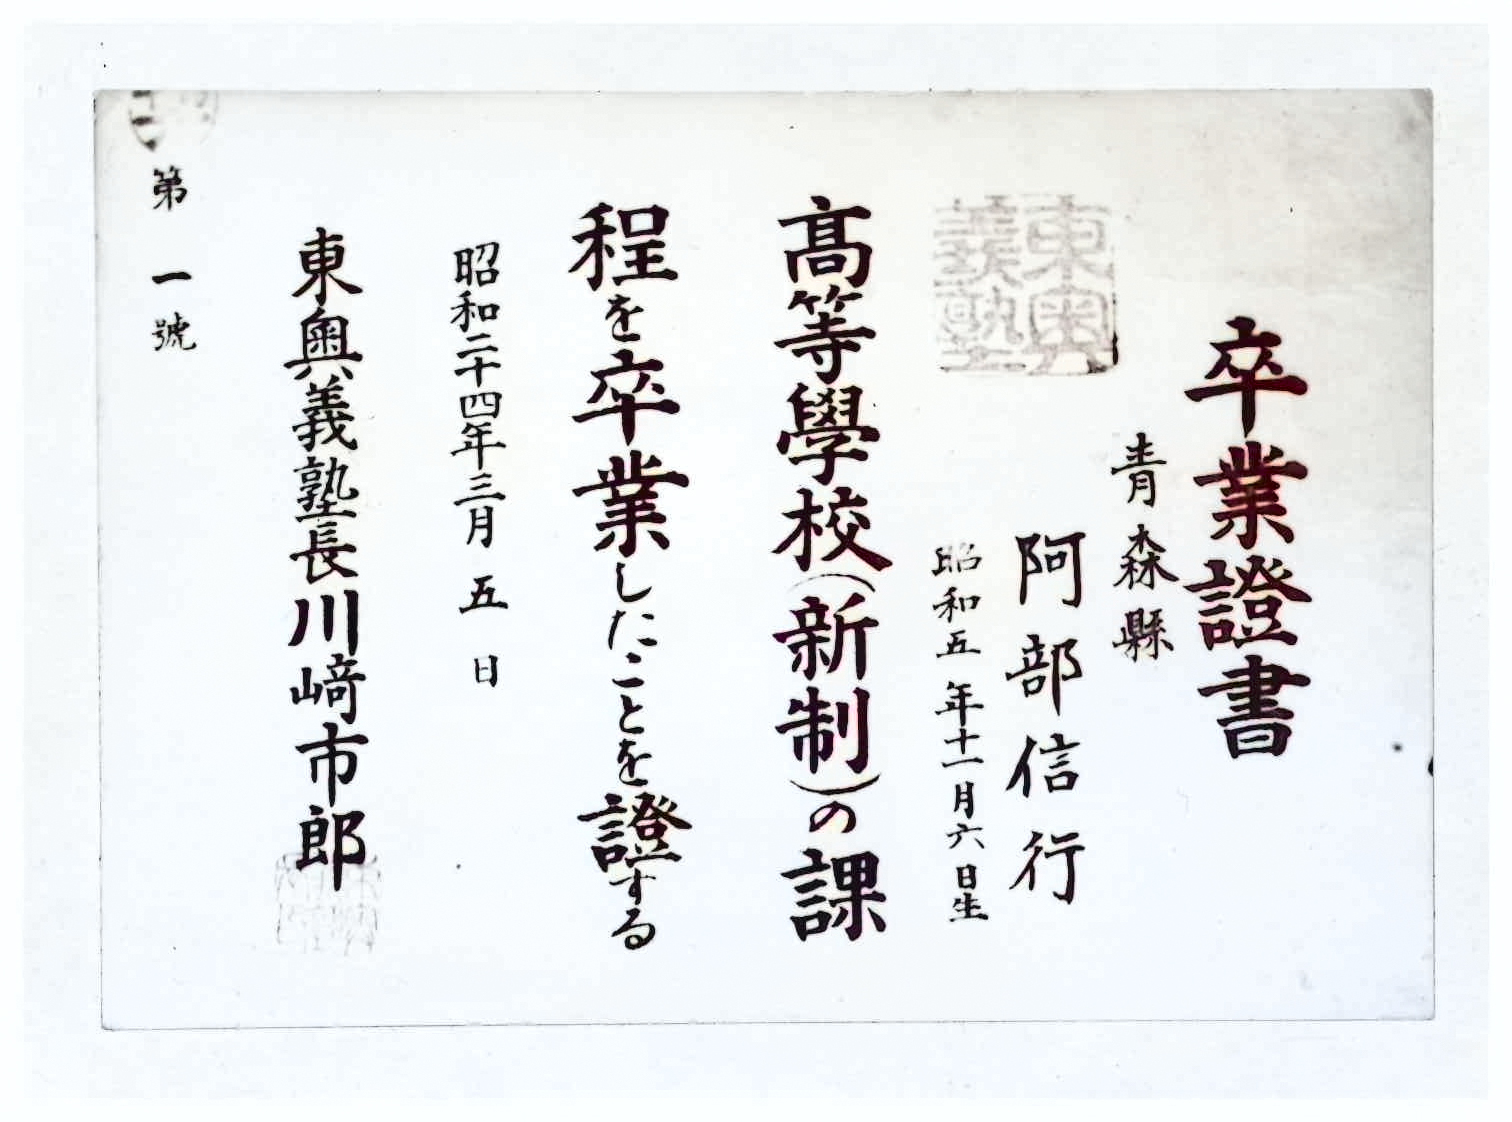 卒業證書
青森縣
阿部信行
昭和五年十一月六日生
東奥義塾
髙等學校(新制)の課
程を卒業したことを證する
昭和二十四年三月五日
東奥義塾長川﨑市郎
第一號